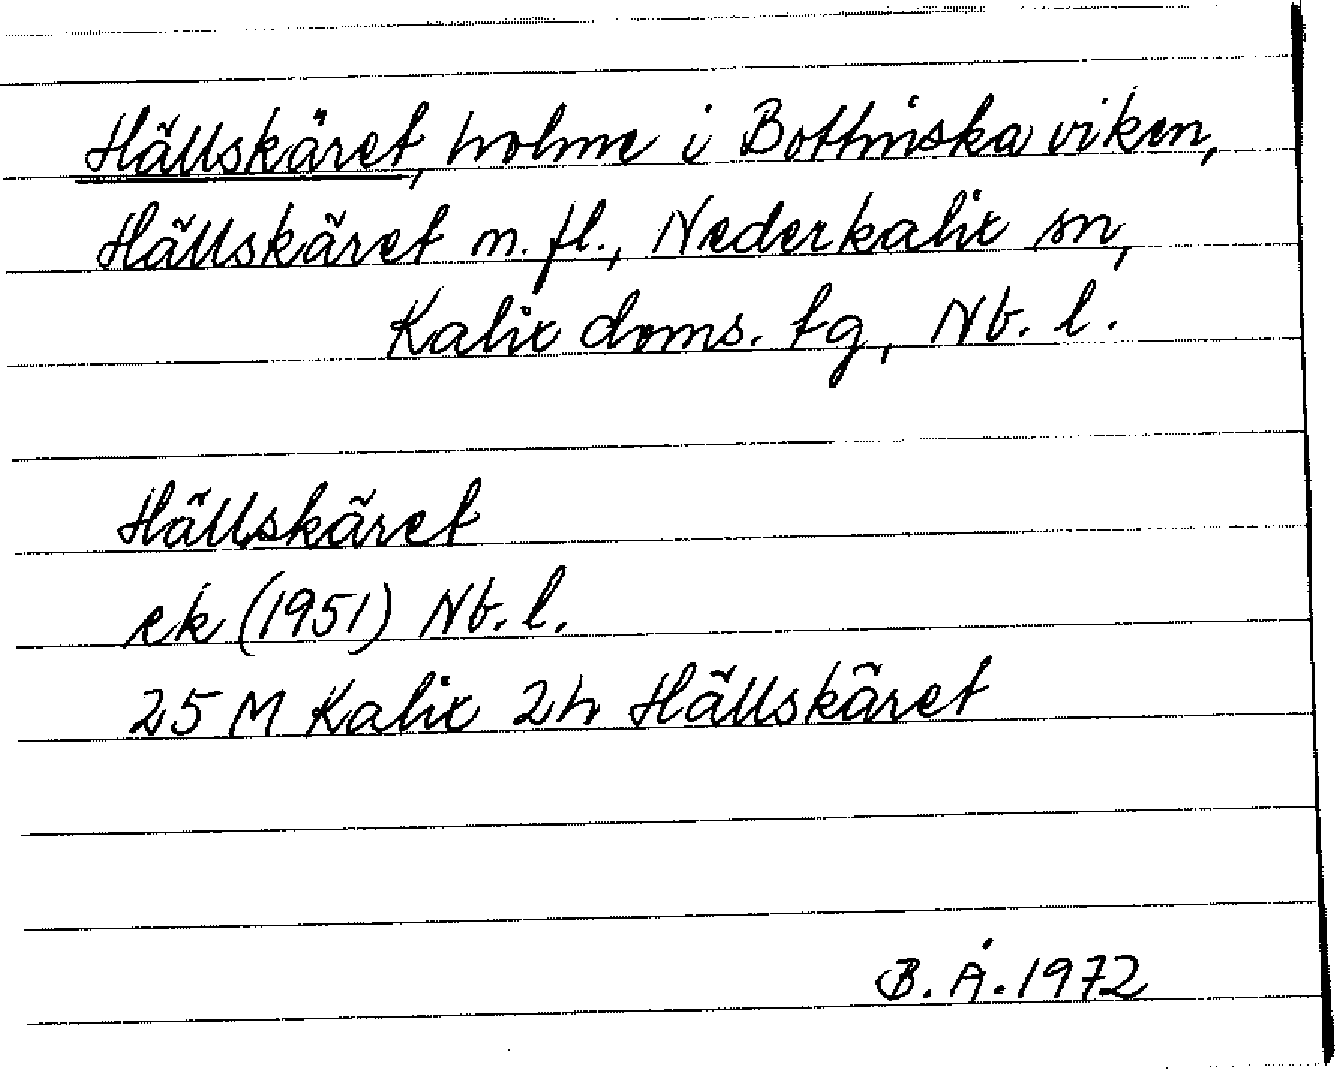 Hällskäret, holme i Bottniska viken,
Hällskäret m. fl., Nederkalix sn,
Kalix doms. tg, Nb. l.
Hällskäret
ek (1951) Nb. l.
25 M Kalix 2h Hällskäret
B. Å. 1972